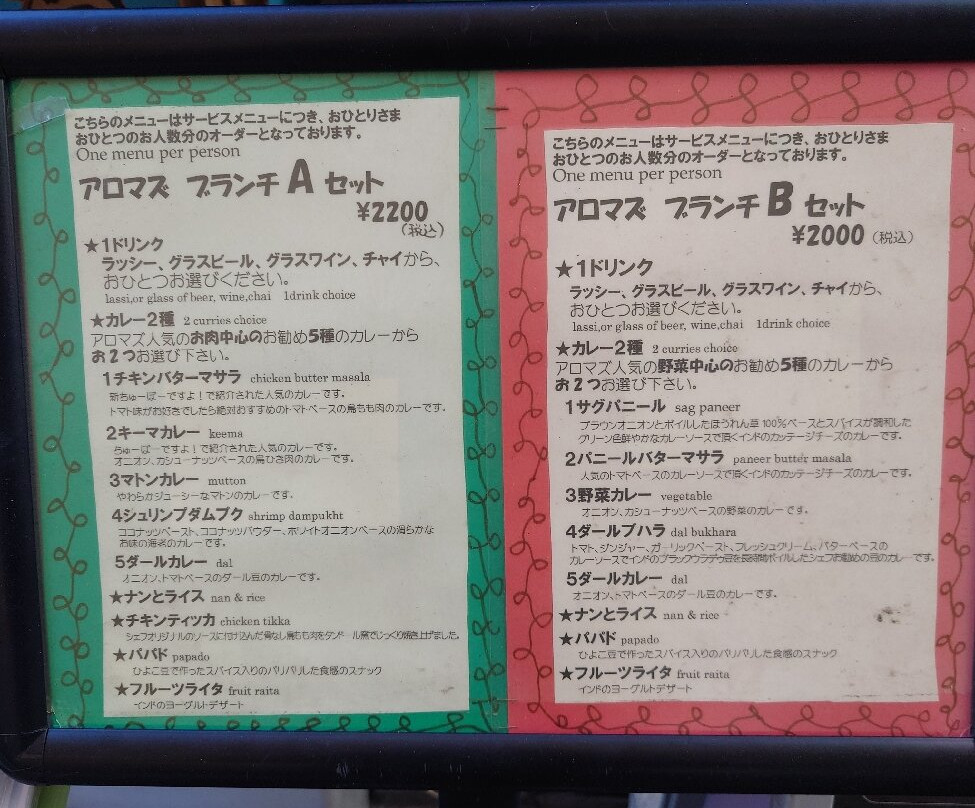 こちらのメニューはサービスメニューにつき、おひとりさま
おひとつのお人数分のオーダーとなっております。
One menu per person
アロマズ ブランチ A セット
¥2200
(税込)
★1ドリンク
ラッシー、グラスビール、グラスワイン、チャイから、
おひとつお選びください。
lassi,or glass of beer, wine,chai 1drink choice
★カレー2種 2 curries choice
アロマズ人気のお肉中心のお勧め5種のカレーから
お2つお選び下さい。
1チキンバターマサラ chicken butter masala
新ちゅーぼーですよ！で紹介された人気のカレーです。
トマト味がお好きでしたら絶対おすすめのトマトベースの鳥もも肉のカレーです。
2キーマカレー keema
ちゅーぼーですよ！で紹介された人気のカレーです。
オニオン、カシューナッツベースの鳥ひき肉のカレーです。
3マトンカレー mutton
やわらかジューシーなマトンのカレーです。
4シュリンプダムプク shrimp dampukht
ココナッツペースト、ココナッツパウダー、ホワイトオニオンベースの滑らかな
お味の海老のカレーです。
5ダールカレー dal
オニオン、トマトベースのダール豆のカレーです。
★ナンとライス nan & rice
★チキンティッカ chicken tikka
シェフオリジナルのソースに付け込んだ骨なし鳥もも肉をタンドール窯でじっくり焼き上げました。
★パパド papado
ひよこ豆で作ったスパイス入りのパリパリした食感のスナック
★フルーツライタ fruit raita
インドのヨーグルトデザート
こちらのメニューはサービスメニューにつき、おひとりさま
おひとつのお人数分のオーダーとなっております。
One menu per person
アロマズ ブランチ B セット
¥2000 (税込)
★1ドリンク
ラッシー、グラスビール、グラスワイン、チャイから、
おひとつお選びください。
lassi,or glass of beer, wine,chai 1drink choice
★カレー2種 2 curries choice
アロマズ人気の野菜中心のお勧め5種のカレーから
お2つお選び下さい。
1サグパニール sag paneer
ブラウンオニオンとボイルしたほうれん草100%ベースとスパイスが調和した
グリーン色鮮やかなカレーソースで頂くインドのカッテージチーズのカレーです。
2パニールバターマサラ paneer butter masala
人気のトマトベースのカレーソースで頂くインドのカッテージチーズのカレーです。
3野菜カレー vegetable
オニオン、カシューナッツベースの野菜のカレーです。
4ダールブハラ dal bukhara
トマト、ジンジャー、ガーリックペースト、フレッシュクリーム、バターベースの
カレーソースでインドのブラックウラデゥ豆を長時間ボイルしたシェフお勧めの豆のカレーです。
5ダールカレー dal
オニオン、トマトベースのダール豆のカレーです。
★ナンとライス nan & rice
★パパド papado
ひよこ豆で作ったスパイス入りのパリパリした食感のスナック
★フルーツライタ fruit raita
インドのヨーグルトデザート